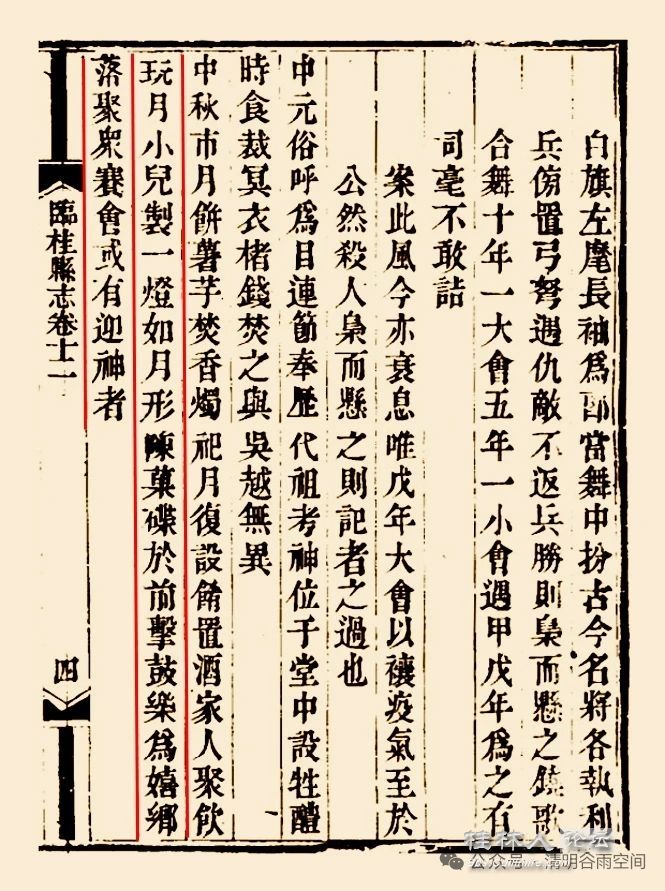 白旗左麾長袖爲部當舞中扮古今名將各執利
兵傍置弓弩遇仇敵不返兵勝則梟而懸之鐃歌
合舞十年一大會五年一小會遇甲戊年爲之有
司毫不敢詰
案此風今亦衰息唯戊年大會以禳疫氣至於
公然殺人梟而懸之則記者之過也
中元俗呼爲目連節奉歷代祖考神位于堂中設牲醴
時食裁冥衣楮錢焚之與吳越無異
中秋市月餅薯芋焚香燭祀月復設餚置酒家人聚飲
玩月小兒製一燈如月形陳菓碟於前擊鼓樂爲嬉鄉
落聚衆賽會或有迎神者
臨桂縣志卷十一
四
桂林人论坛
公众号 清明谷雨空间